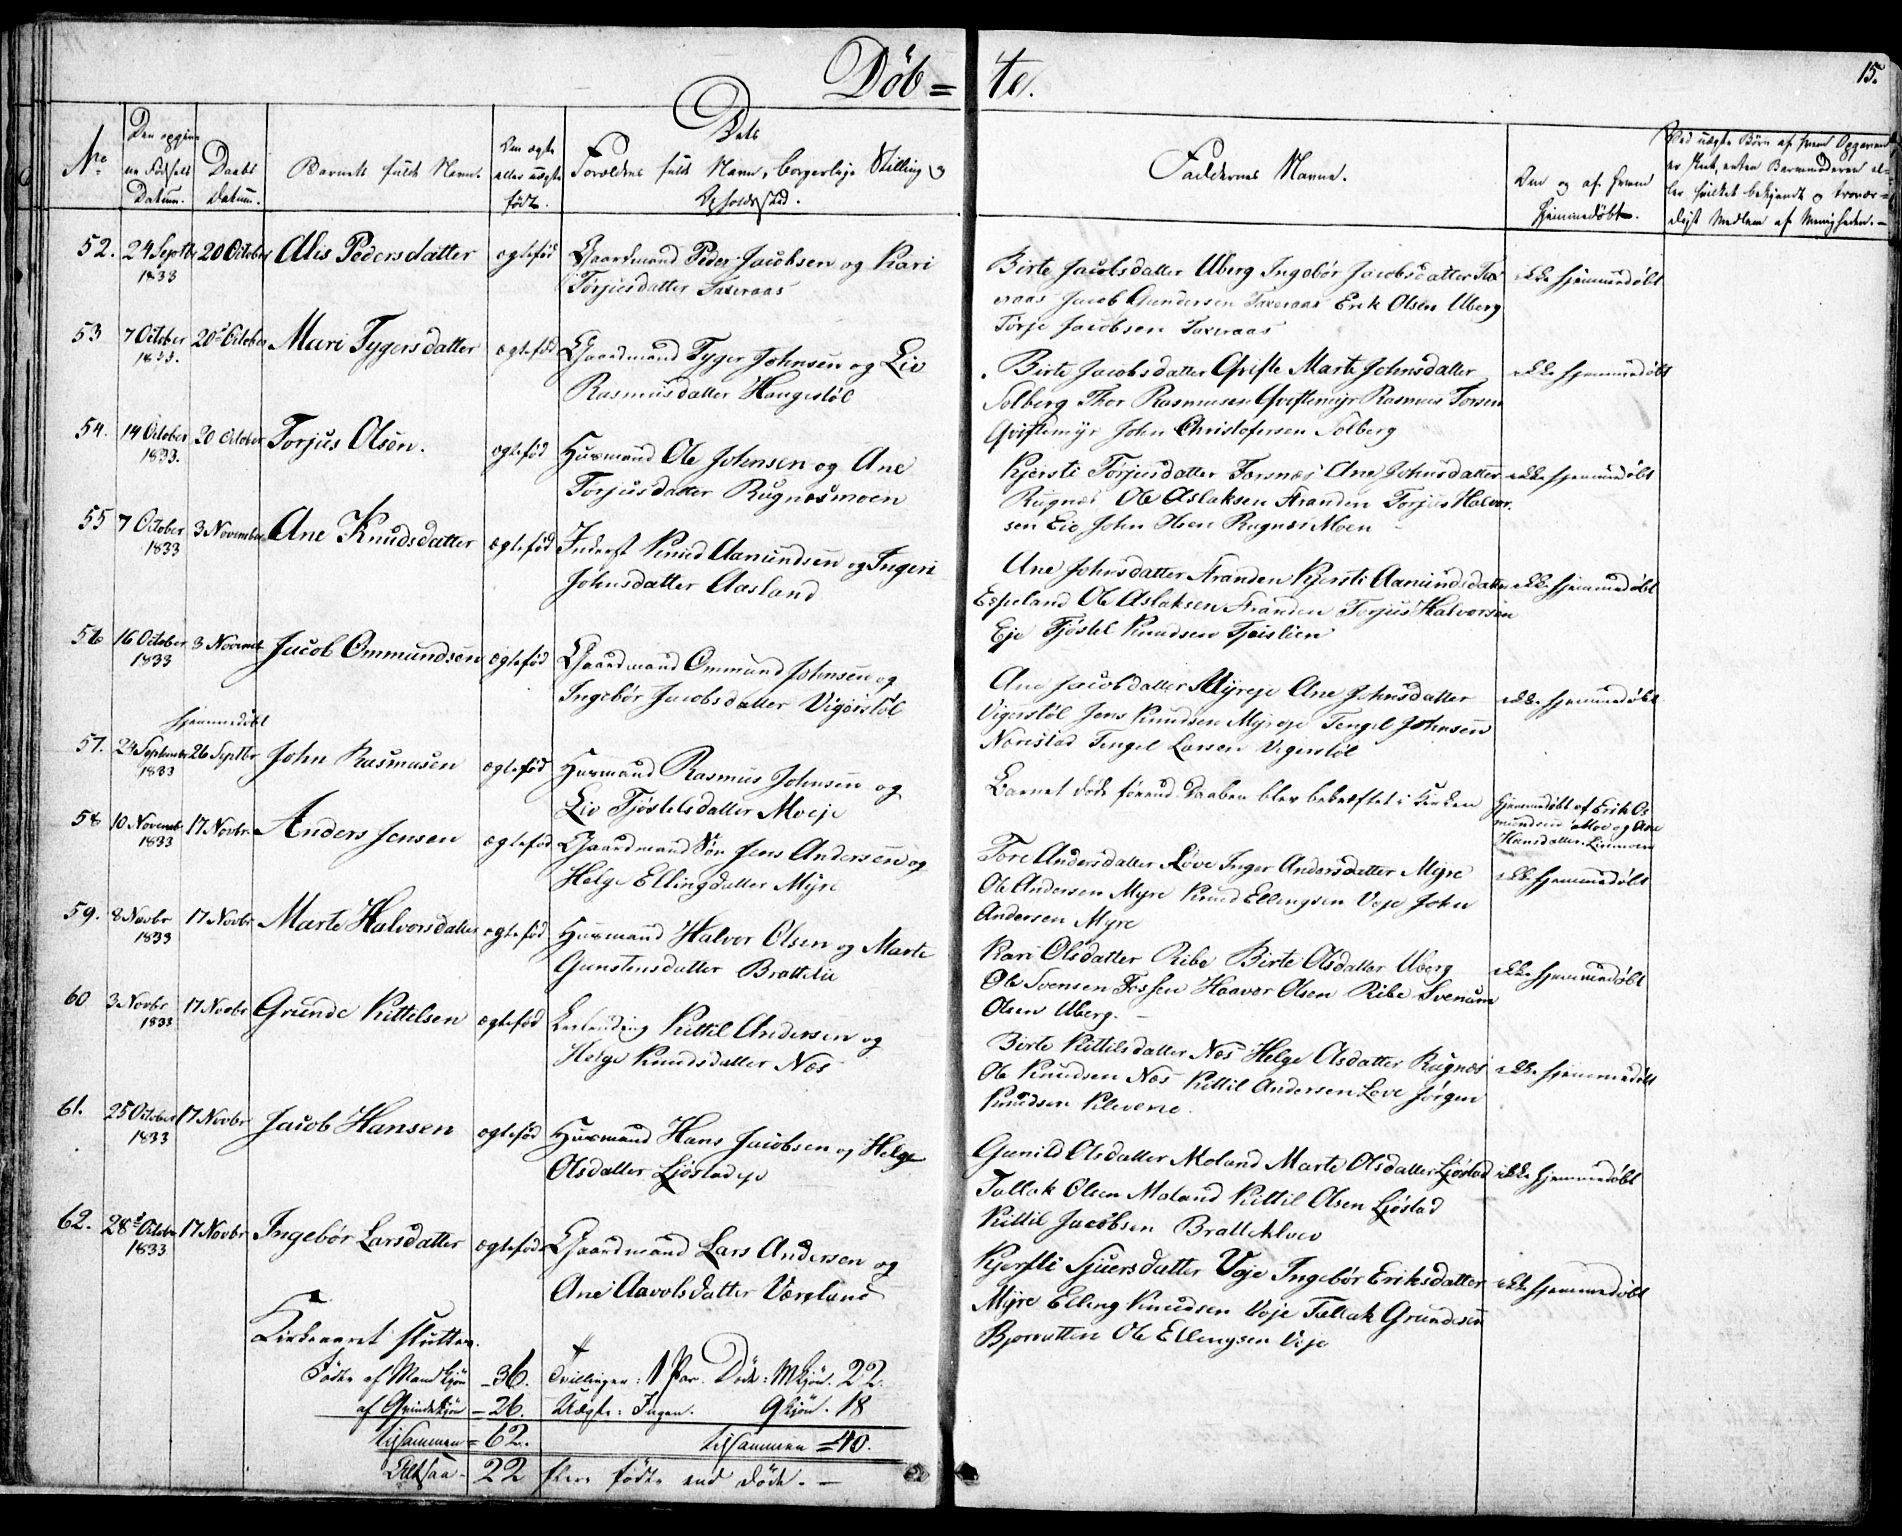 Døb= te.
15.
No
Den opgivne Fødsels Datum.
Daabs Datum.
Barnets fulde Navn.
Om ægte eller uægte født.
Dets Forældres fulde Navn, borgerlige Stilling og Opholdssted.
Faddernes Navne.
Om og af hvem hjemmedøbt.
52. 24 Septbr 1833 20 October Alis Pedersdatter ægtefød Gaardmand Peder Jacobsen og Kari
Torjusdatter Taxeraas
Birte Jacobsdatter Uberg Ingebør Jacobsdatter Tax
eraas Jacob Gundersen Taxeraas Erik Olsen Uberg
Torje Jacobsen Taxeraas
ikke hjemmedøbt
53 7 October 1833. 20 October Mari Tygersdatter ægtefød Gaardmand Tyger Johnsen og Liv
Rasmusdatter Haugestøl
Birte Jacobsdatter Qvifte Marte Johnsdatter
Solberg Thor Rasmusen Qviftemyr Rasmus Torsen
Qviftemyr John Christofersen Solberg
ikke hjemmedøbt
54. 14 October 1833. 20 October Torjus Olsen. ægtefød Husmand Ole Johnsen og Ane
Torjusdatter Rugnæsmoen
Kjersti Torjusdatter Forsnæs Ane Johnsdatter
Rugnæs Ole Aslaksen Stranden Torjus Halvor
sen Eie John Olsen Rugnæs Moen
ikke hjemmedøbt
55 7 October 1833 3 November Ane Knudsdatter ægtefød Inderst Knud Aamundsen og Ingeri
Johnsdatter Aasland
Ane Johnsdatter Stranden Kjersti Aamundsdatter
Espeland Ole Aslaksen Stranden Torjus Halvorsen
Eje Tjøstel Knudsen Tveitlien
ikke hjemmedøbt
56 16 October 1833 3 Novemb Jacob Ommundsen ægtefød Gaardmand Ommund Johnsen og
Ingebør Jacobsdatter Vigerstøl
Ane Jacobdatter Myreje Ane Johnsdatter
Vigerstøl Jens Knudsen Myreje Tengel Johnsen
Narestad Tengel Larsen Vigerstøl
ikke hjemmedøbt
hjemmedøbt
57. 24 September 1833 26 Septbr John Rasmusen ægtefød Husmand Rasmus Johnsen og
Liv Tjøstelsdatter Moeje
Barnet døde førend Daaben blev bekræftet i Kirken
hjemmedøbt af Erik Os
mundsen Moe og Ane
Hansdatter
58 10 Novemb 1833 17 Novbr Anders Jensen ægtefød Gaardmand Søn Jens Andersen og
Helge Ellingdatter Myre
Tore Andersdatter Løve Inger Andersdatter Myre
Ole Andersen Myre Knud Ellingsen Voje John
Andersen Myre
ikke hjemmedøbt
59. 8 Novbr 1833 17 Novbr Marte Halvorsdatter ægtefød Husmand Halvor Olsen og Marte
Gunstensdatter Brattelie
Kari Olsdatter Ribe Birte Olsdatter Uberg
Ole Svensen Fossen Haavor Olsen Ribe Svenum
Olsen Uberg.
ikke hjemmedøbt
60 3 Novbr 1833 17 Novbr Grunde Kittelsen ægtefød Kittil Andersen og
Helge Knudsdatter Næs
Birte Kittilsdatter Næs Helge Olsdatter Rugnæs
Ole Knudsen Næs Kittil Andersen Løve Jørgen
Knudsen Klevene.
ikke hjemmedøbt
61. 25 October 1833 17 Novbr Jacob Hansen ægtefød Husmand Hans Jacobsen og Helge
Olsdatter Ljøstadeje
Gunild Olsdatter Moland Marte Olsdatter Ljøstad
Tallak Olsen Moland Kittil Olsen Ljøstad
Kittil Jacobsen Brattekleev
ikke hjemmedøbt
62. 28 October 1833 17 Novbr Ingebør Larsdatter ægtefød Gaardmand Lars Andersen og
Ane Aavolsdatter Værsland
Kjersti Sjursdatter Voje Ingebør Eriksdatter
Myre Elling Knudsen Voje Tallak Grundesen
Bjorvatten Ole Ellingsen Voje
ikke hjemmedøbt
Kirkeaaret sluttes.
Fødte af Mandkjøn - 36. Tvillinger: 1 Par. Døde: Mkjøn. 22.
af Qvindekjøn - 26. Uægte: Ingen. Qkjøn. 18
tilsammen = 62. tilsammen = 40.
Altsaa - 22 flere fødte end døde. -